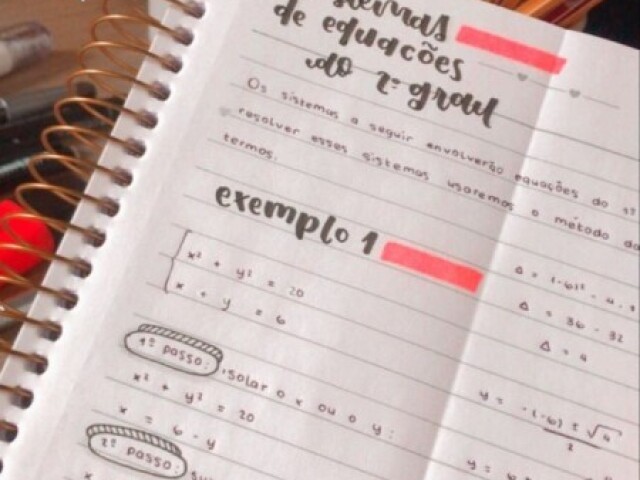 de equações
do 2º grau
Os sistemas a seguir envolverão equações do 1º
resolver esses sistemas usaremos o método da
termos.
exemplo 1
x² + y² = 20
x + y = 6
1º passo: isolar o x ou o y:
x² + y² = 20
x = 6 - y
2º passo:
Δ = (-6)² - 4 .
Δ = 36 - 32
Δ = 4
y = -(-6) ± √4
2
y =